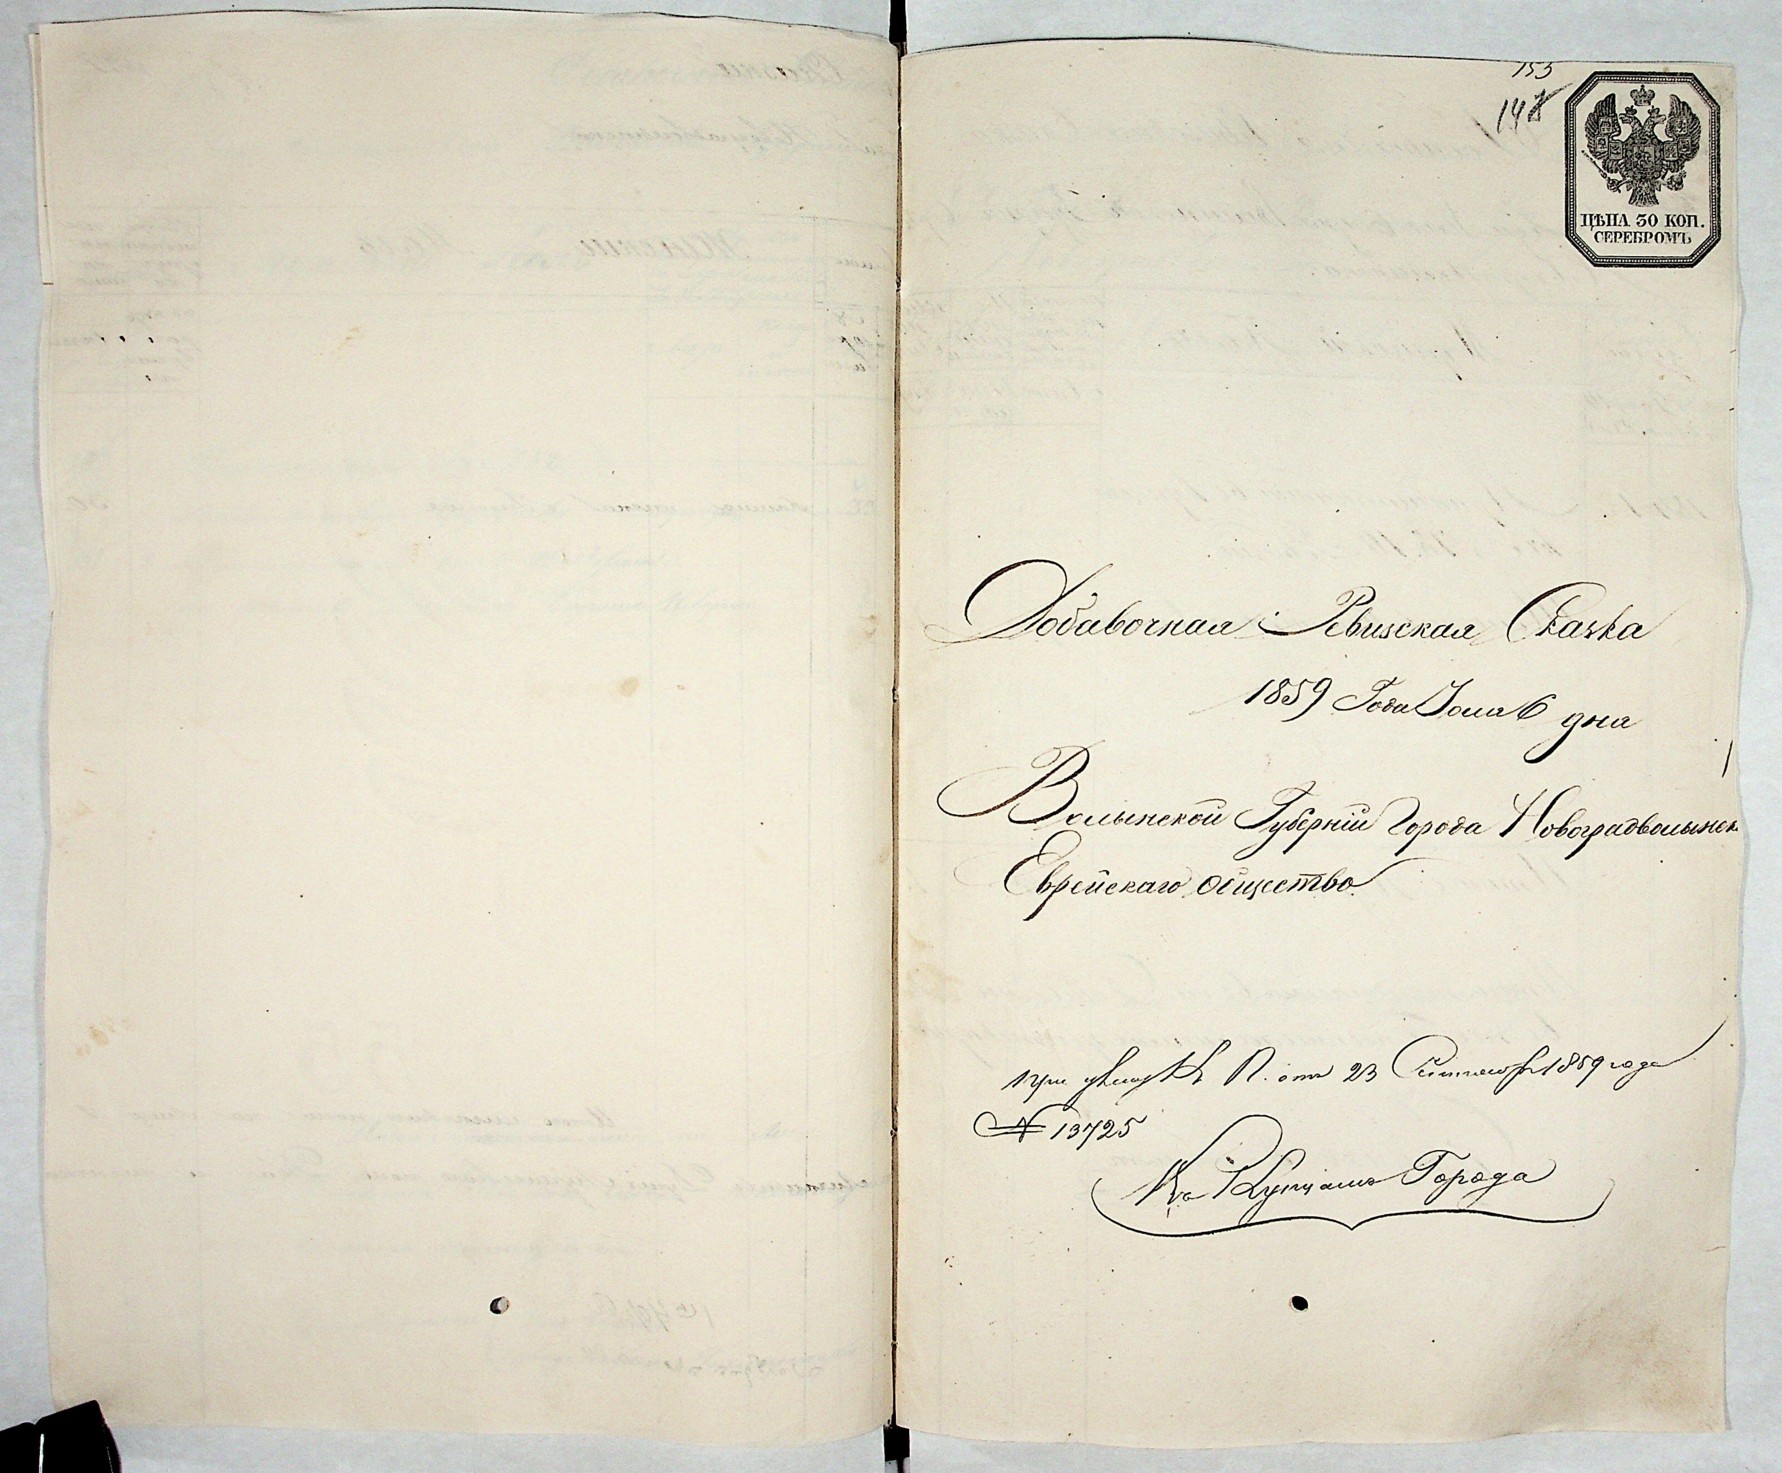 153
148
ЦѢНА 30 КОП.
СЕРЕБРОМЪ
Добавочная Ревизская Сказка
1859 Года Іюля 6 дня
Волынской Губерніи Города Новоградволынск
Еврейскаго общества
при указѣ К. П. отъ 23 Сентября 1859 года
№ 13725
Города